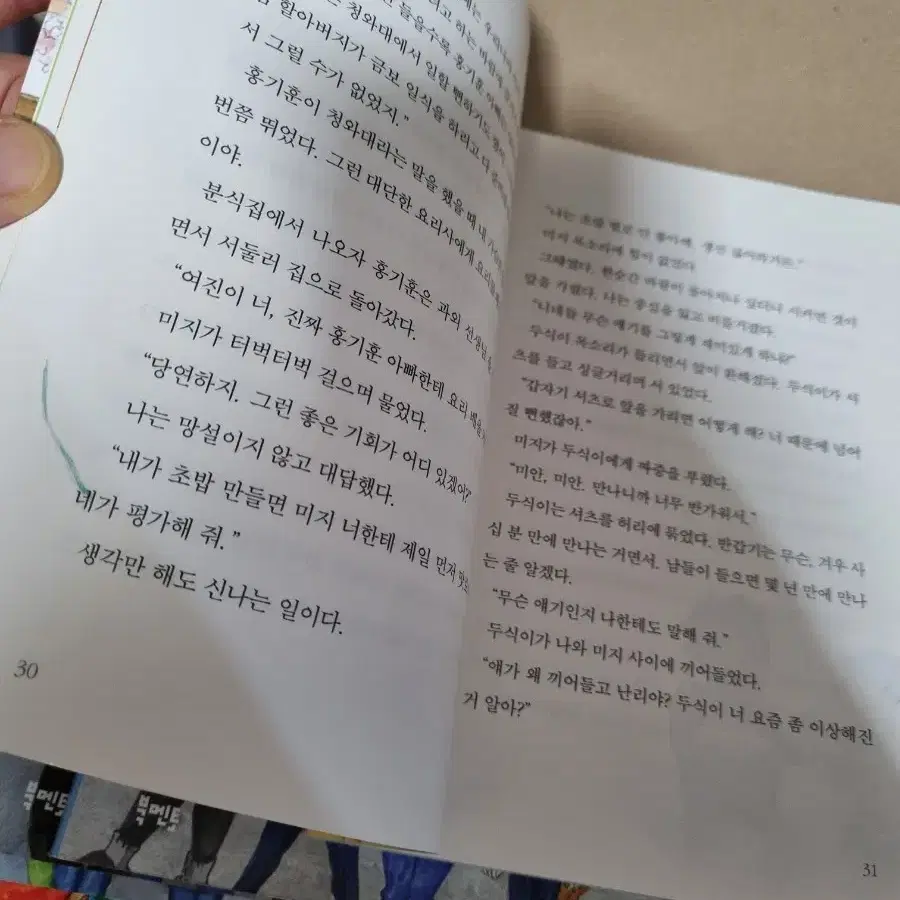 할아버지가 금보 일식을 하려고
서 그럴 수가 없었지.”
홍기훈이 청와대라는 말을 했을 때 내
번쯤 뛰었다. 그런 대단한 요리사에게
이야.
분식집에서 나오자 홍기훈은 과외 선생님
면서 서둘러 집으로 돌아갔다.
“여진이 너, 진짜 홍기훈 아빠한테 요리
미지가 터벅터벅 걸으며 물었다.
“당연하지. 그런 좋은 기회가 어디 있겠어?
나는 망설이지 않고 대답했다.
“내가 초밥 만들면 미지 너한테 제일 먼저
네가 평가해 줘.”
생각만 해도 신나는 일이다.
30
“나는 초밥 별로 안 좋아해.
미지 목소리에 힘이 없었다.
그때였다. 한순간 바람이 불어치나 싶더니 시커먼 것이
앞을 가렸다. 나는 중심을 잃고 비틀거렸다.
“너네들 무슨 얘기를 그렇게 재미있게 하냐?”
두식이 목소리가 들리면서 앞이 환해졌다. 두식이가 셔
츠를 들고 싱글거리며 서 있었다.
“갑자기 셔츠로 앞을 가리면 어떻게 해? 너 때문에 넘어
질 뻔했잖아.”
미지가 두식이에게 짜증을 부렸다.
“미안, 미안. 만나니까 너무 반가워서.”
두식이는 셔츠를 허리에 묶었다. 반갑기는 무슨, 겨우 사
십 분 만에 만나는 거면서. 남들이 들으면 몇 년 만에 만나
는 줄 알겠다.
“무슨 얘기인지 나한테도 말해 줘.”
두식이가 나와 미지 사이에 끼어들었다.
“얘가 왜 끼어들고 난리야? 두식이 너 요즘 좀 이상해진
거 알아?”
31
북멘토
북멘토